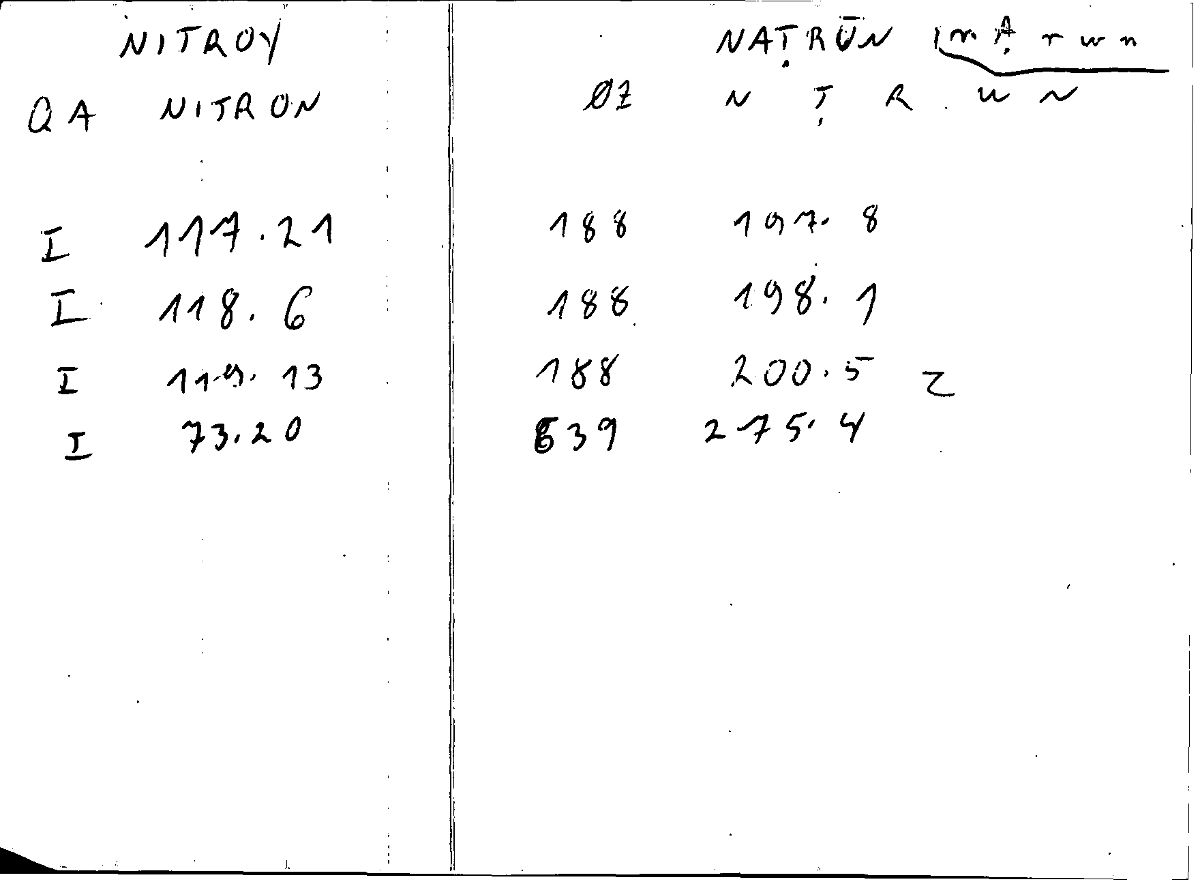 NITROY NAṬRŪN
QA NITRON ØZ N Ṭ R W N
I 117.21 188 197.8
I 118.6 188 198.1
I 119.13 188 200.5
I 73.20 639 275.4